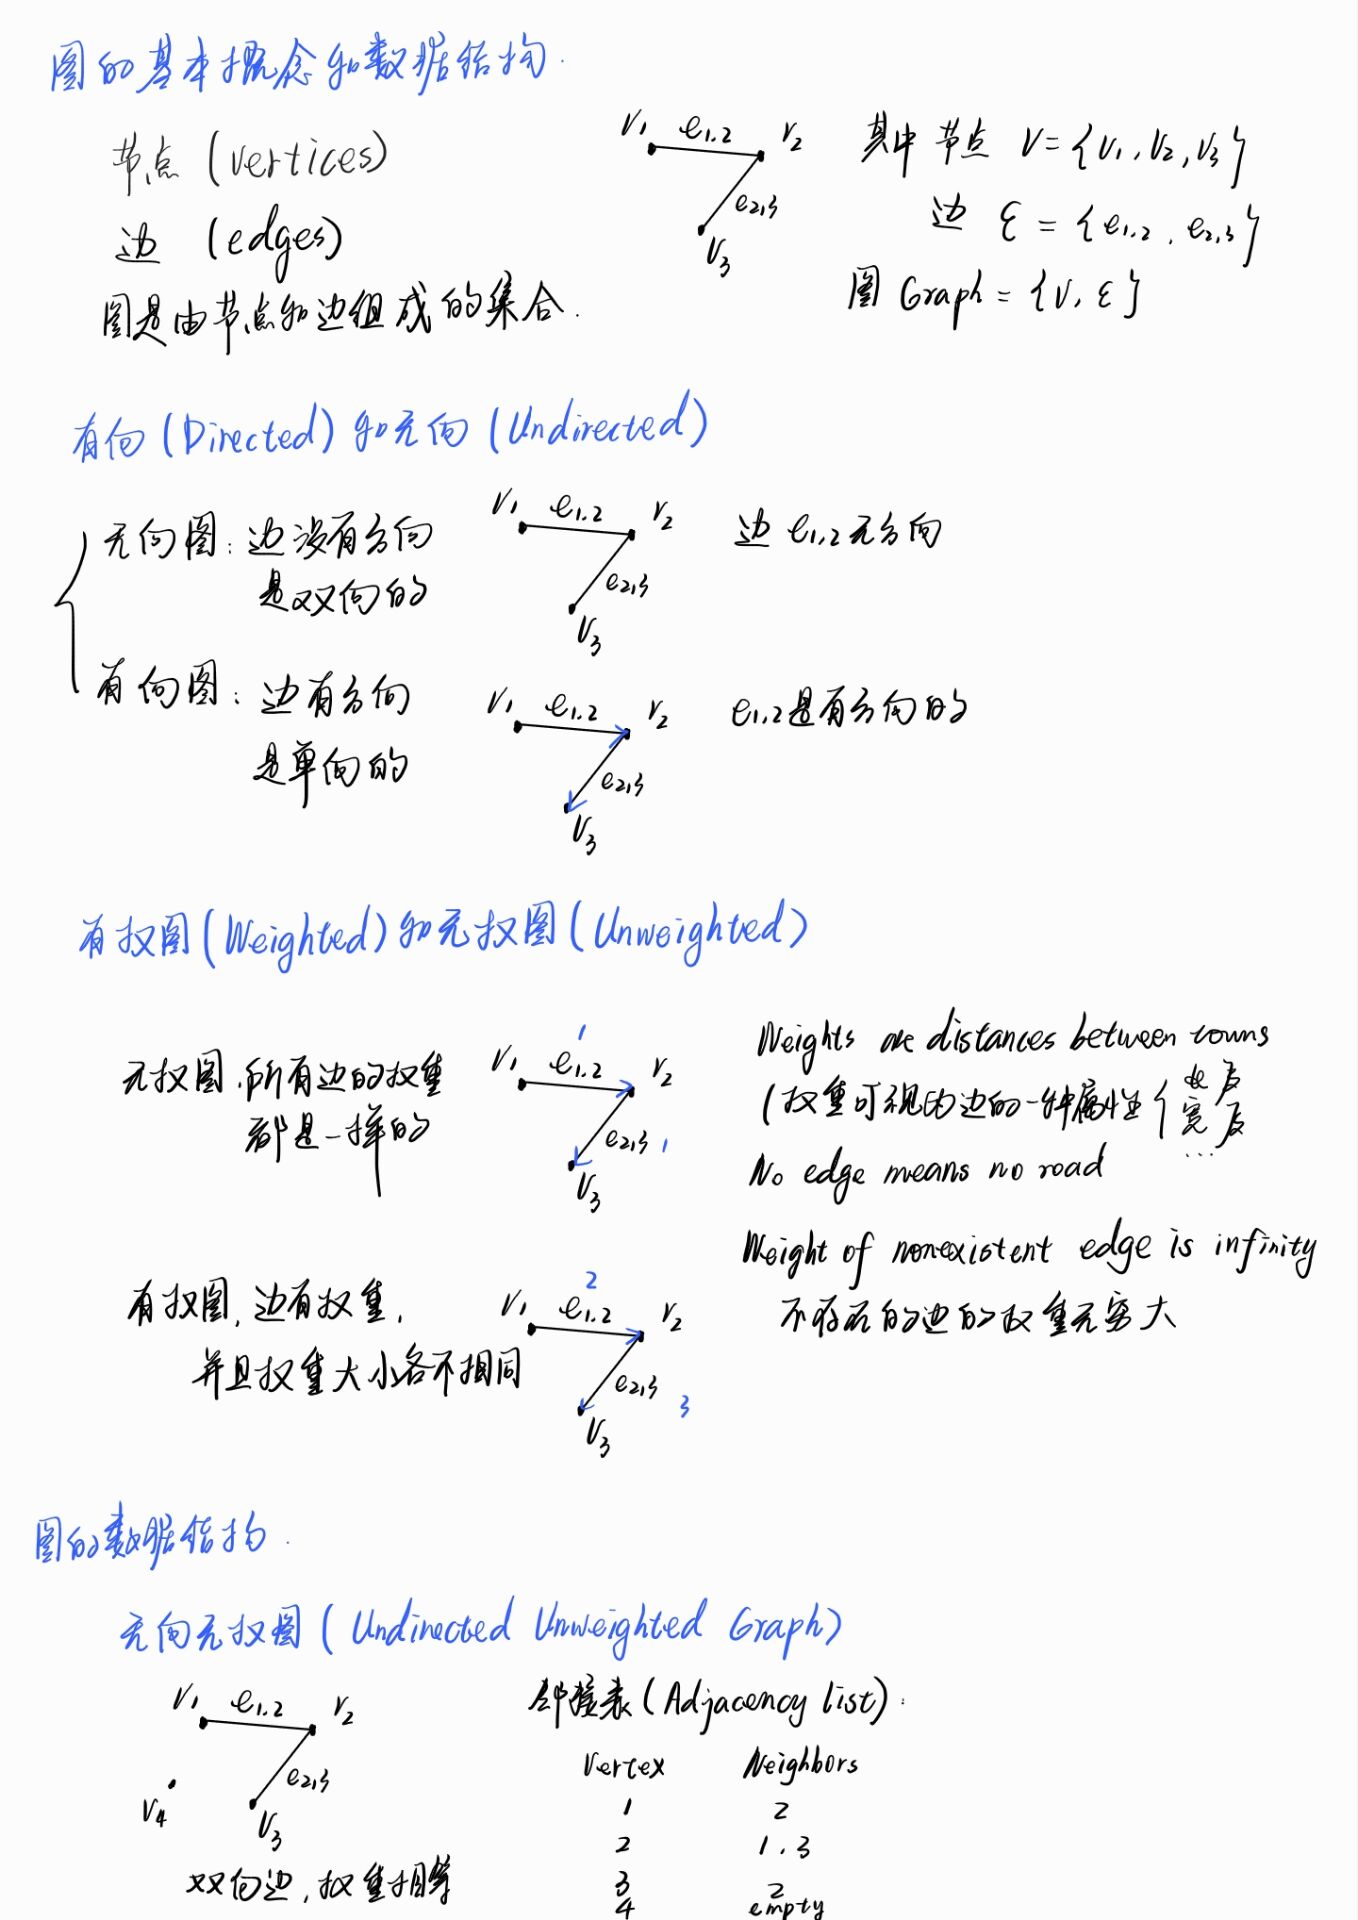 图的基本概念和数据结构.
节点 (vertices)
边 (edges)
图是由节点和边组成的集合.
V1 e1.2 V2
e2,3
V3
其中 节点 V={V1,V2,V3}
边 ε={e1.2, e2,3}
图 Graph={V, ε}
有向(Directed)和无向(Undirected)
无向图: 边没有方向
是双向的
V1 e1.2 V2
e2,3
V3
边 e1,2无方向
有向图: 边有方向
是单向的
V1 e1.2 V2
e2,3
V3
e1,2是有方向的
有权图(Weighted)和无权图(Unweighted)
无权图.所有边的权重
都是一样的
1
V1 e1.2 V2
e2,3 1
V3
Weights are distances between towns
(权重可视为边的一种属性{长度
宽度
...
No edge means no road
Weight of nonexistent edge is infinity
不存在的边的权重无穷大
有权图, 边有权重,
并且权重大小各不相同
2
V1 e1.2 V2
e2,3 3
V3
图的数据结构.
无向无权图(Undirected Unweighted Graph)
V1 e1.2 V2
e2,3
V4
V3
双向边,权重相等
邻接表(Adjacency list):
Vertex Neighbors
1 2
2 1.3
3 2
4 empty